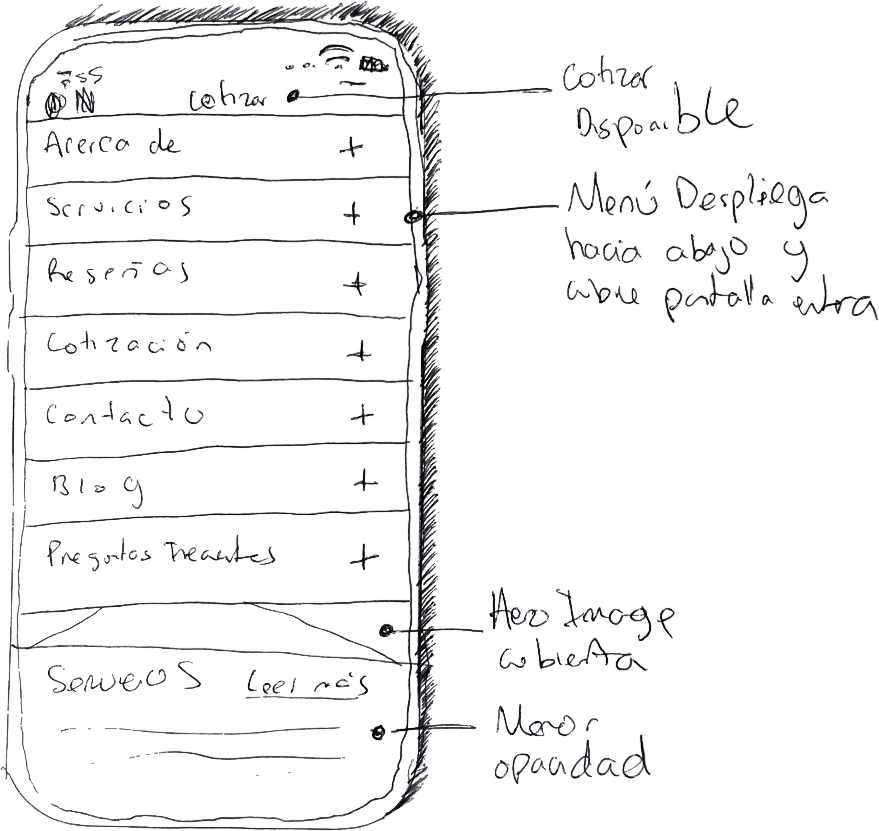 7:55
Cotizar
Acerca de +
Servicios +
Reseñas +
Cotización +
Contacto +
Blog +
Preguntas Frecuentes +
Servicios Leer más
Cotizar
Disponible
Menú Despliega
hacia abajo y
cubre pantalla entera
Hero Image
cubierta
Menor
opacidad